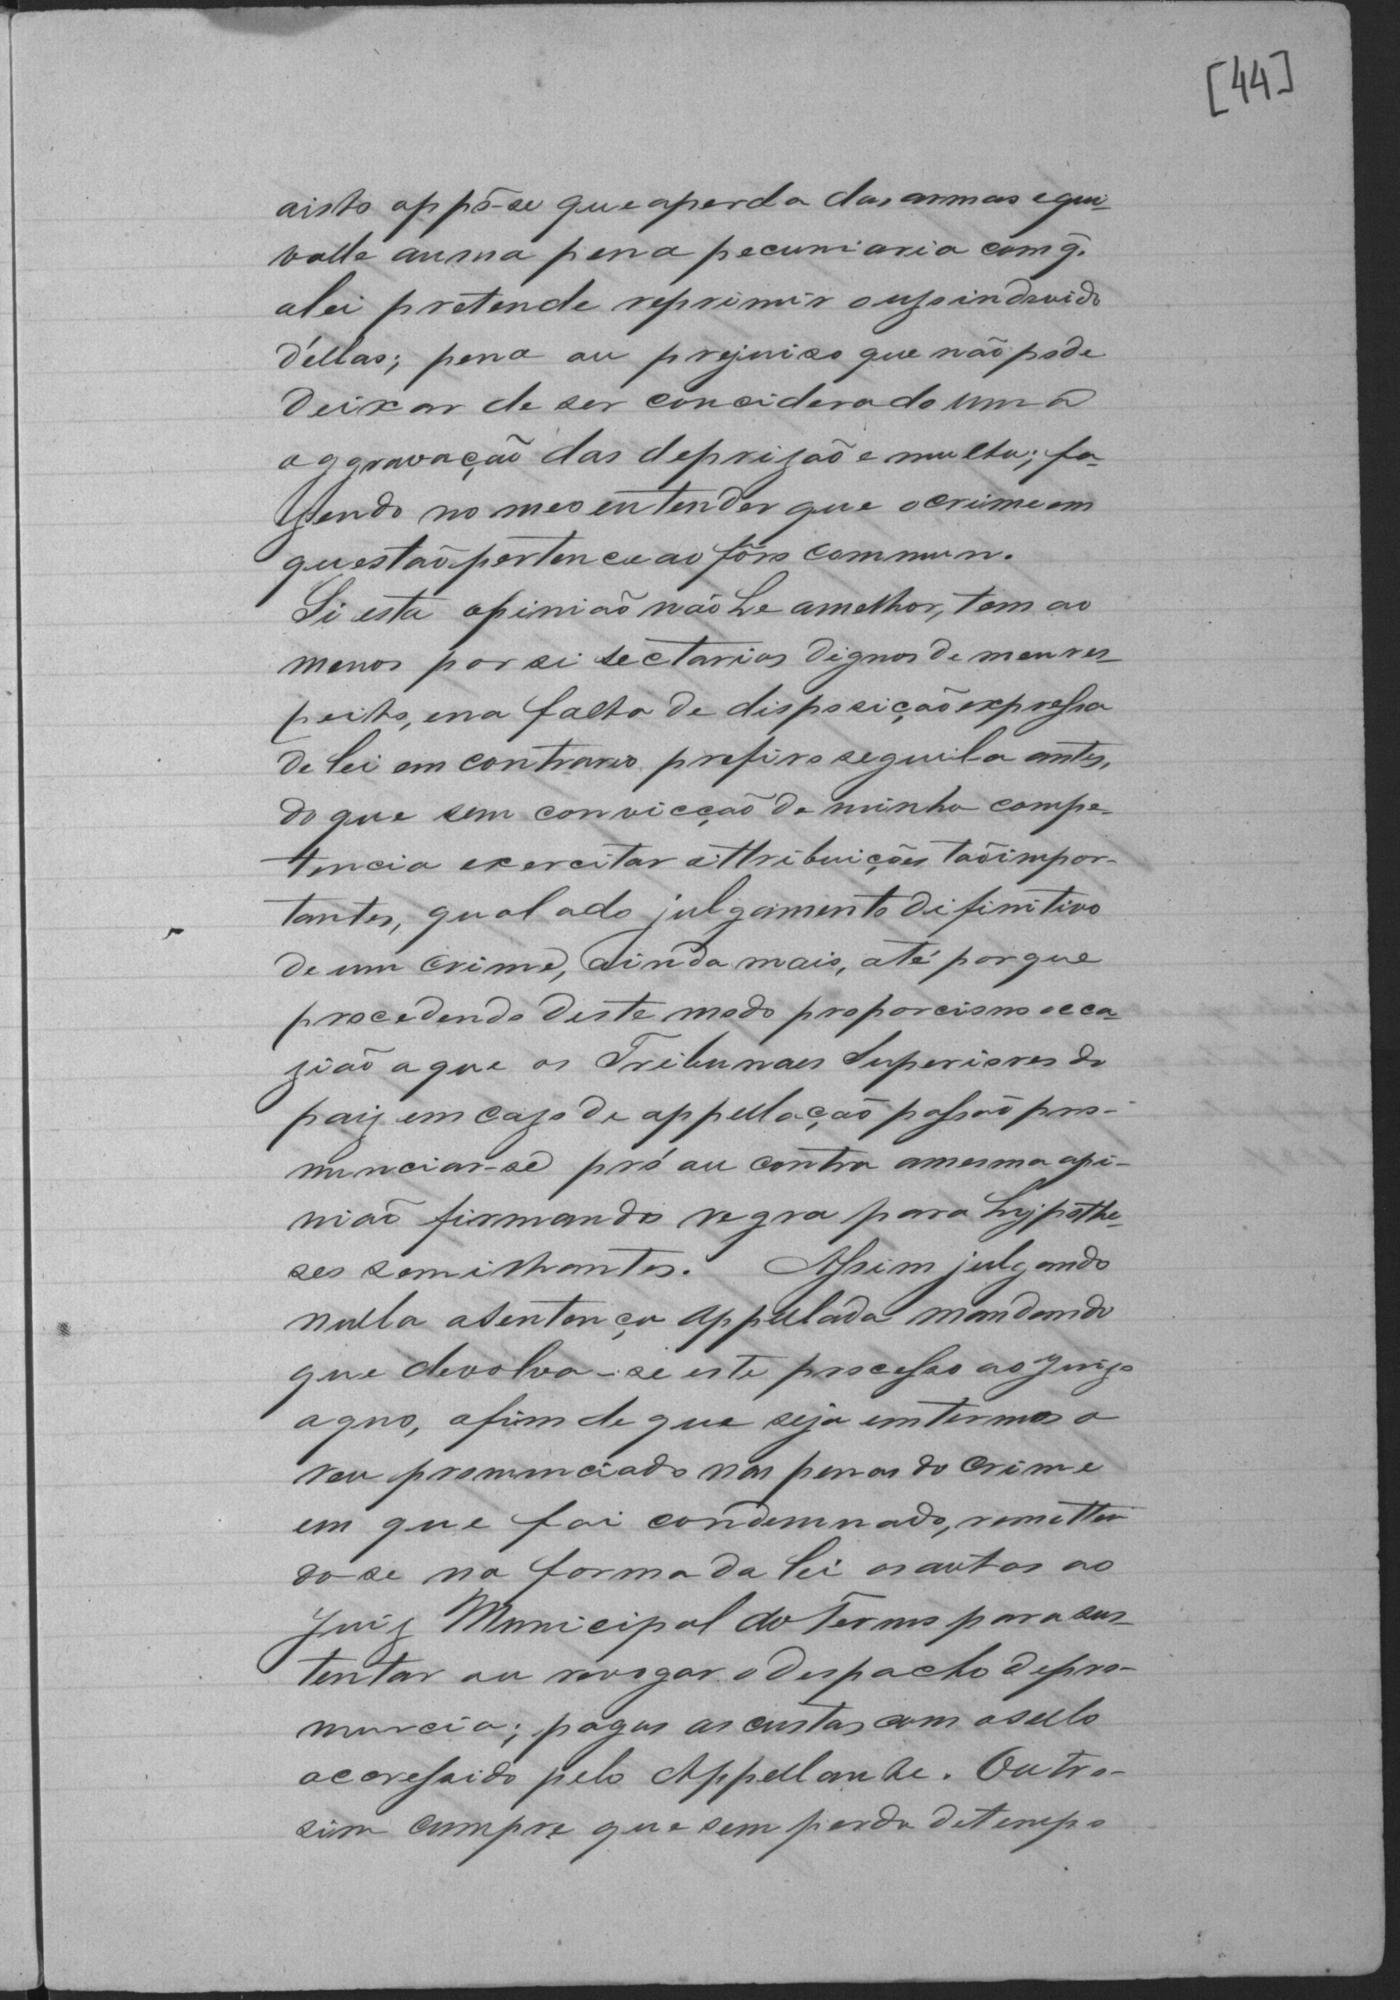 [44]
aisto appõ-se que aperda das armas equi-
valle auma pena pecuniaria com q̃.
alei pretende reprimir o uzo indevido
d'ellas; pena ou prejuiso que não pode
deixar de ser considerado uma
aggravação das deprizaõ e multa; fa-
zendo no meo entender que ocrime em
questaõ pertence ao fôro commun.
Si esta opinião não he amelhor, tem ao
menos por si sectarios dignos de meu res-
peito, ena falta de disposição expressa
de lei em contrario prefiro seguila antes,
do que sem convicção de minha compe-
tencia exercitar attribuições taõ impor-
tantes, qual ado julgamento difinitivo
de um crime, ainda mais, até porque
procedendo deste modo proporciono occa-
zião a que os Tribunaes Superiores do
paiz em cazo de appellação possaõ pro-
nunciar-se pró ou contra amesma opi-
niaõ firmando regra para hypothe-
ses semilhantes. Assim julgando
nulla asentença appellada mandando
que devolva-se este processo ao Juizo
aquo, afim de que seja emtermos o
reu pronunciado nas penas do crime
em que foi condemnado, remetten
do-se na forma da lei osautos ao
Juiz Municipal do Termo para sus-
tentar ou revogar o despacho depro-
nuncia; pagas as custas com osello
accressido pelo Appellante. Outro-
sim cumpre que sem perda detempo